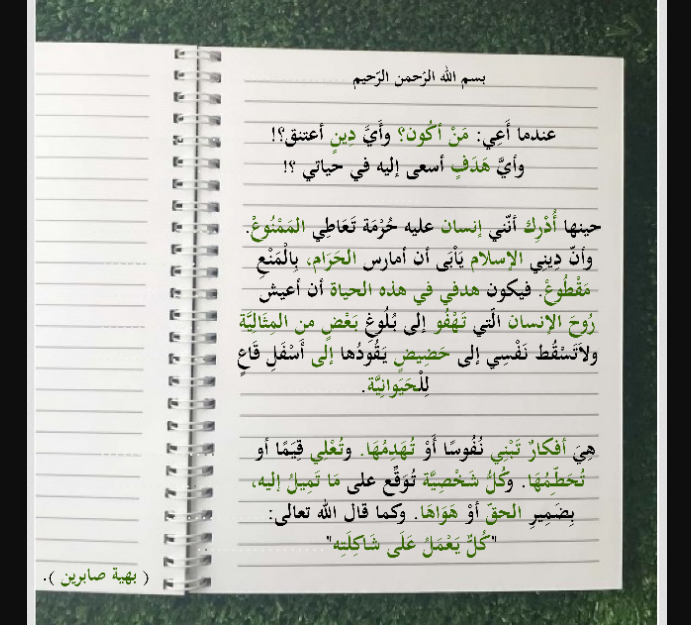 بسم الله الرَحمن الرَحيم
عندما أَعِي: مَنْ أكُون؟ وأَيَّ دِينٍ أعتنق؟!
وأيَّ هَدَفٍ أسعى إليه في حياتي ؟!
حينها أُدْرِك أنّني إنسان عليه حُرْمَة تَعَاطِي المَمْنُوعْ.
وأنّ دِينِي الإسلام يَأبَى أن أمارس الحَرَام، بِالْمَنْعِ
مَقْطُوعْ. فيكون هدفي في هذه الحياة أن أعيش
رُوحَ الإنسان الّتي تَهْفُو إلى بُلُوغِ بَعْضٍ من المِثَالِيَّة
ولاَتَسْقُط نَفْسِي إلى حَضِيضٍ يَقُودُها إلى أَسْفَلِ قَاعٍ
لِلْحَيَوانِيَّة.
هِيَ أفكارٌ تَبْنِي نُفُوسًا أَوْ تُهَدِمُهَا. وتُعْلِي قِيَمًا أو
تُحَطِّمُهَا. وكُلُّ شَخْصِيَّة تُوَقِّع على مَا تَمِيلُ إليه،
بِضَمِيرِ الحقّ أوْ هَوَاهَا. وكما قال الله تعالى:
"كُلٌّ يَعْمَلُ عَلَى شَاكِلَتِه"
( بهية صابرين ).